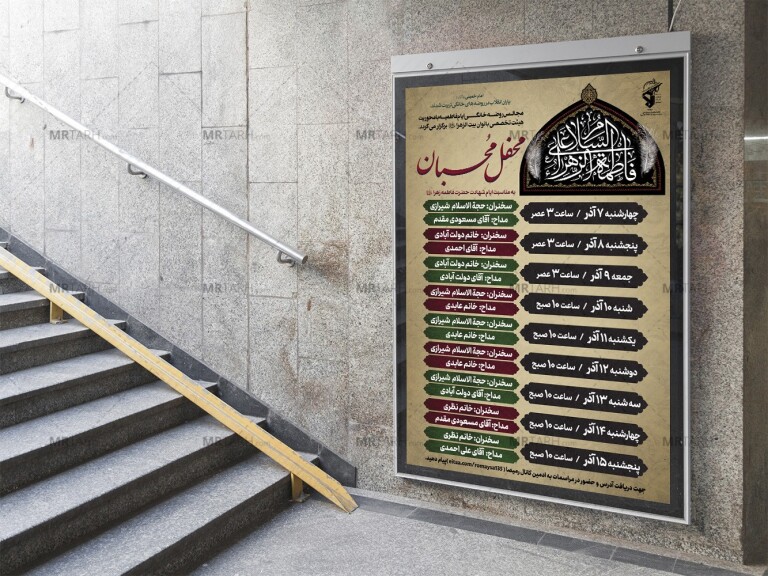 امام خمینی
یاران انقلاب در روضه‌های خانگی تربیت شدند
مجالس روضه خانگی ایام فاطمیه با محوریت
هیئت تخصصی بانوان بیت الزهرا برگزار می‌گردد
السلام علی
فاطمة الزهرا
محفل محبان
به مناسبت ایام شهادت حضرت فاطمه زهرا
چهارشنبه ۷ آذر / ساعت ۳ عصر
سخنران: حجة الاسلام شیرازی
مداح: آقای مسعودی مقدم
پنجشنبه ۸ آذر / ساعت ۳ عصر
سخنران: خانم دولت آبادی
مداح: آقای احمدی
جمعه ۹ آذر / ساعت ۳ عصر
سخنران: خانم دولت آبادی
مداح: آقای دولت آبادی
شنبه ۱۰ آذر / ساعت ۱۰ صبح
سخنران: حجة الاسلام شیرازی
مداح: خانم عابدی
یکشنبه ۱۱ آذر / ساعت ۱۰ صبح
سخنران: حجة الاسلام شیرازی
مداح: خانم عابدی
دوشنبه ۱۲ آذر / ساعت ۱۰ صبح
سخنران: حجة الاسلام شیرازی
مداح: خانم عابدی
سه شنبه ۱۳ آذر / ساعت ۱۰ صبح
سخنران: حجة الاسلام شیرازی
مداح: آقای دولت آبادی
چهارشنبه ۱۴ آذر / ساعت ۱۰ صبح
سخنران: خانم نظری
مداح: آقای مسعودی مقدم
پنجشنبه ۱۵ آذر / ساعت ۱۰ صبح
سخنران: خانم نظری
مداح: آقای علی احمدی
جهت دریافت آدرس و حضور در مراسمات به ادمین کانال رمیصا (eitaa.com/romaysa135) پیام دهید.
MRTARH.com